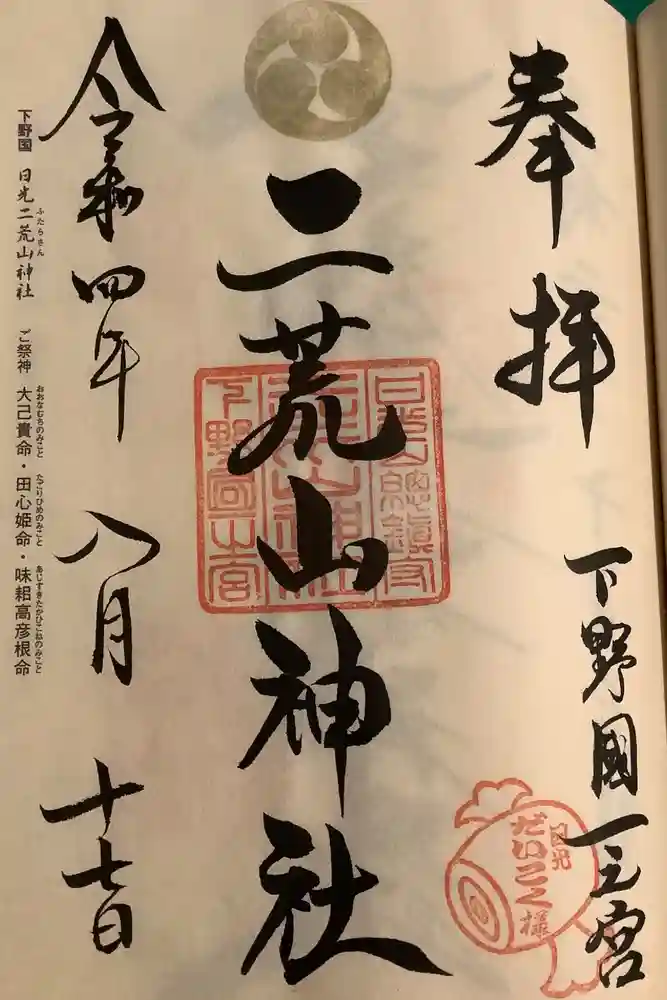 奉拝
下野國一之宮
日光
だいこく様
二荒山神社
日光山總鎮守
二荒山神社
下野國一之宮
令和四年
八月
十七日
下野国 日光二荒山神社 ご祭神 大己貴命・田心姫命・味耜高彦根命
ふたらさん
おおなむちのみこと
たごりひめのみこと
あじすきたかひこねのみこと